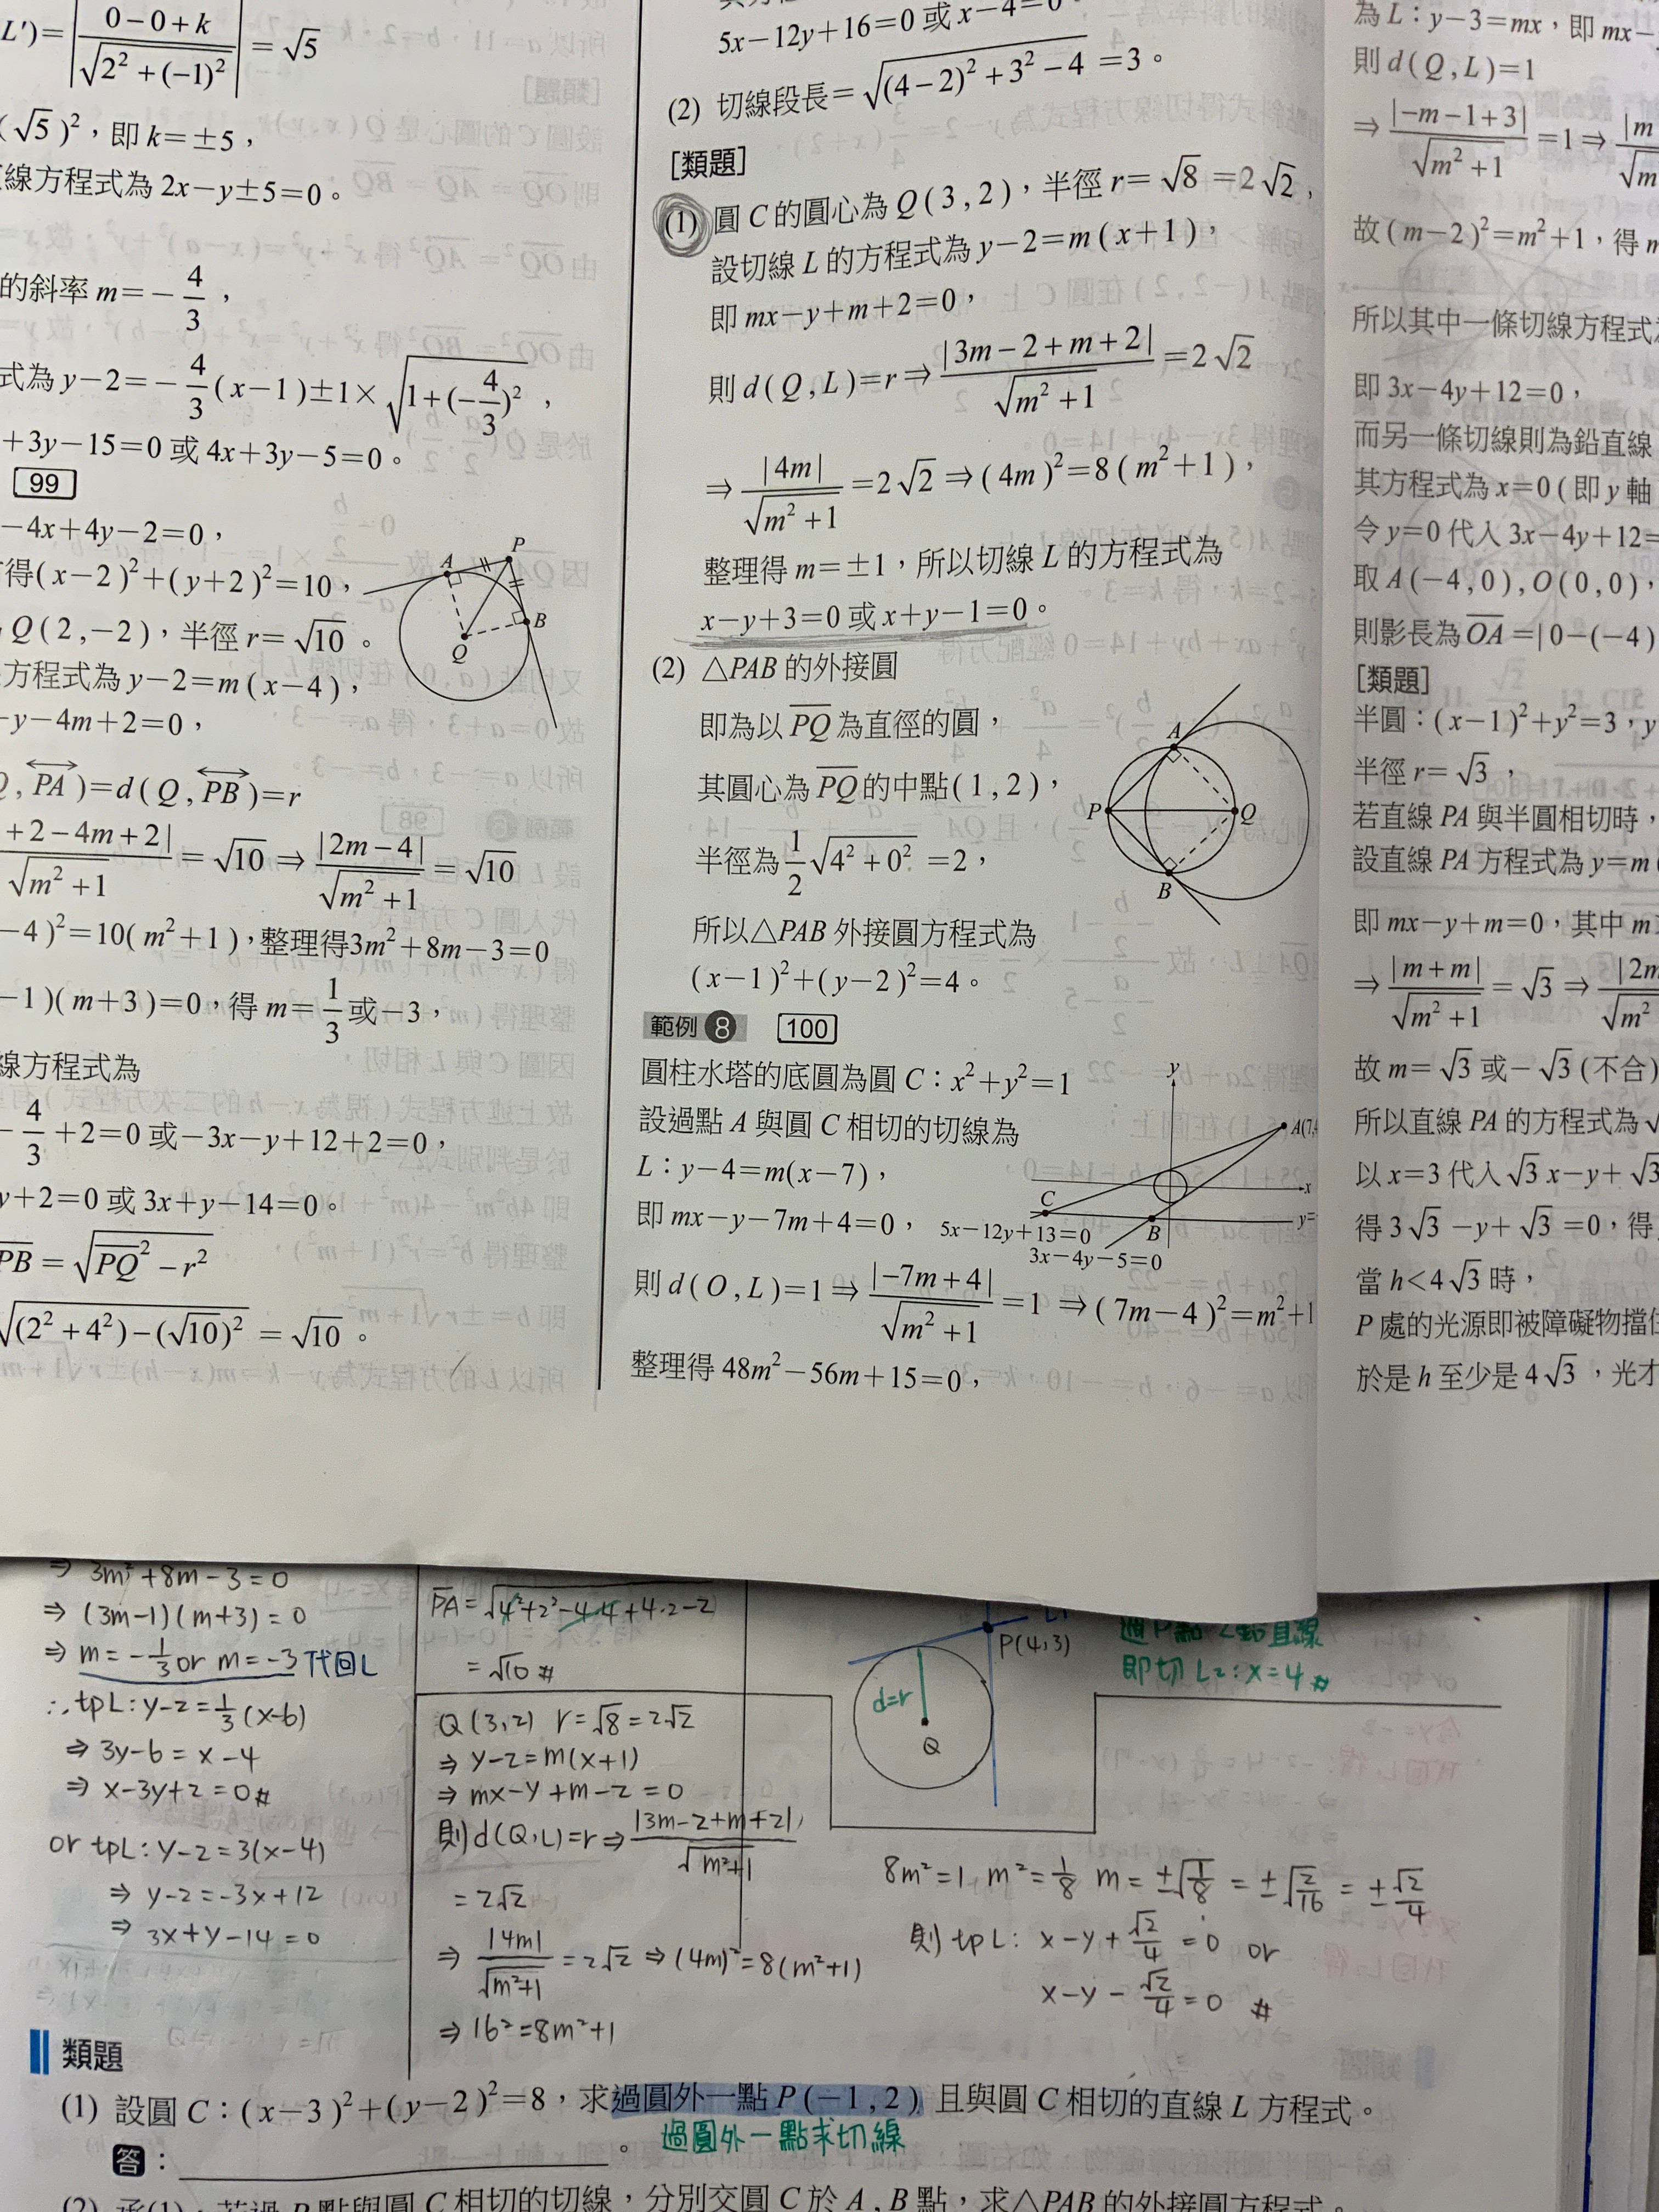 L')=|0−0+k/√(2²+(−1)²)|=√5
(√5)²，即k=±5，
線方程式為2x−y±5=0。
的斜率m=−4/3，
式為y−2=−4/3(x−1)±1×√(1+(−4/3)²)，
+3y−15=0或4x+3y−5=0。
99
−4x+4y−2=0，
得(x−2)²+(y+2)²=10，
Q(2,−2)，半徑r=√10。
方程式為y−2=m(x−4)，
−y−4m+2=0，
A
P
B
Q
Q,PA)=d(Q,PB)=r
+2−4m+2|/√(m²+1)=√10⇒|2m−4|/√(m²+1)=√10
−4)²=10(m²+1)，整理得3m²+8m−3=0
−1)(m+3)=0，得m=1/3或−3，
線方程式為
−4/3+2=0或−3x−y+12+2=0，
y+2=0或3x+y−14=0。
PB=√(PQ²−r²)
√((2²+4²)−(√10)²)=√10。
5x−12y+16=0或x−4=0。
(2) 切線段長=√((4−2)²+3²−4)=3。
[類題]
(1) 圓C的圓心為Q(3,2)，半徑r=√8=2√2，
設切線L的方程式為y−2=m(x+1)，
即mx−y+m+2=0，
則d(Q,L)=r⇒|3m−2+m+2|/√(m²+1)=2√2
⇒|4m|/√(m²+1)=2√2⇒(4m)²=8(m²+1)，
整理得m=±1，所以切線L的方程式為
x−y+3=0或x+y−1=0。
(2) △PAB的外接圓
即為以PQ為直徑的圓，
其圓心為PQ的中點(1,2)，
半徑為1/2√(4²+0²)=2，
所以△PAB外接圓方程式為
(x−1)²+(y−2)²=4。
A
P
Q
B
範例8 100
圓柱水塔的底圓為圓C：x²+y²=1
設過點A與圓C相切的切線為
L：y−4=m(x−7)，
即mx−y−7m+4=0，
則d(O,L)=1⇒|−7m+4|/√(m²+1)=1⇒(7m−4)²=m²+1
整理得48m²−56m+15=0，
y
A(7,4
x
C
y=
B
5x−12y+13=0
3x−4y−5=0
為L：y−3=mx，即mx−
則d(Q,L)=1
⇒|−m−1+3|/√(m²+1)=1⇒|m
故(m−2)²=m²+1，得m
所以其中一條切線方程式為
即3x−4y+12=0，
而另一條切線則為鉛直線
其方程式為x=0(即y軸
令y=0代入3x−4y+12=
取A(−4,0),O(0,0)，
則影長為OA=|0−(−4)
[類題]
半圓：(x−1)²+y²=3，y
半徑r=√3，
若直線PA與半圓相切時，
設直線PA方程式為y=m(
即mx−y+m=0，其中m
⇒|m+m|/√(m²+1)=√3⇒|2m
故m=√3或−√3(不合)
所以直線PA的方程式為√
以x=3代入√3x−y+√3
得3√3−y+√3=0，得
當h<4√3時，
P處的光源即被障礙物擋住
於是h至少是4√3，光才
⇒ 3m²+8m−3=0
⇒ (3m−1)(m+3)=0
⇒ m=−1/3 or m=−3 代回L
∴tpL:y−2=1/3(x−6)
⇒ 3y−6=x−4
⇒ x−3y+2=0#
or tpL:y−2=3(x−4)
⇒ y−2=−3x+12
⇒ 3x+y−14=0
PA=√(4²+2²−4·4+4·2−2)
=√10 #
Q(3,2) r=√8=2√2
⇒ y−2=m(x+1)
⇒ mx−y+m−2=0
則d(Q,L)=r⇒|3m−2+m+2|/√(m²+1)
=2√2
⇒ |4m|/√(m²+1)=2√2 ⇒(4m)²=8(m²+1)
⇒ 16²=8m²+1
L1
P(4,3)
d=r
Q
過P點之鉛直線
即切L2:x=4 #
8m²=1, m²=1/8 m=±√(1/8)=±√(2/16)=±√2/4
則tpL: x−y+√2/4=0 or
x−y−√2/4=0 #
類題
(1) 設圓C：(x−3)²+(y−2)²=8，求過圓外一點P(−1,2)且與圓C相切的直線L方程式。
過圓外一點求切線
答：。
(2) 承(1)，若過P點與圓C相切的切線，分別交圓C於A,B點，求△PAB的外接圓方程式。